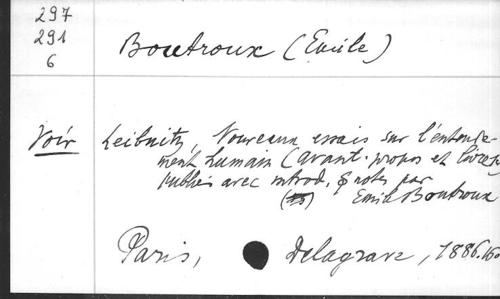 297
291
6
Boutroux (Emile)
Voir Leibnitz, Nouveaux essais sur l'entende-
ment humain (avant-propos et livre I)
publiés avec introd. & notes par
Emile Boutroux
Paris, Delagrave, 1886. 16o